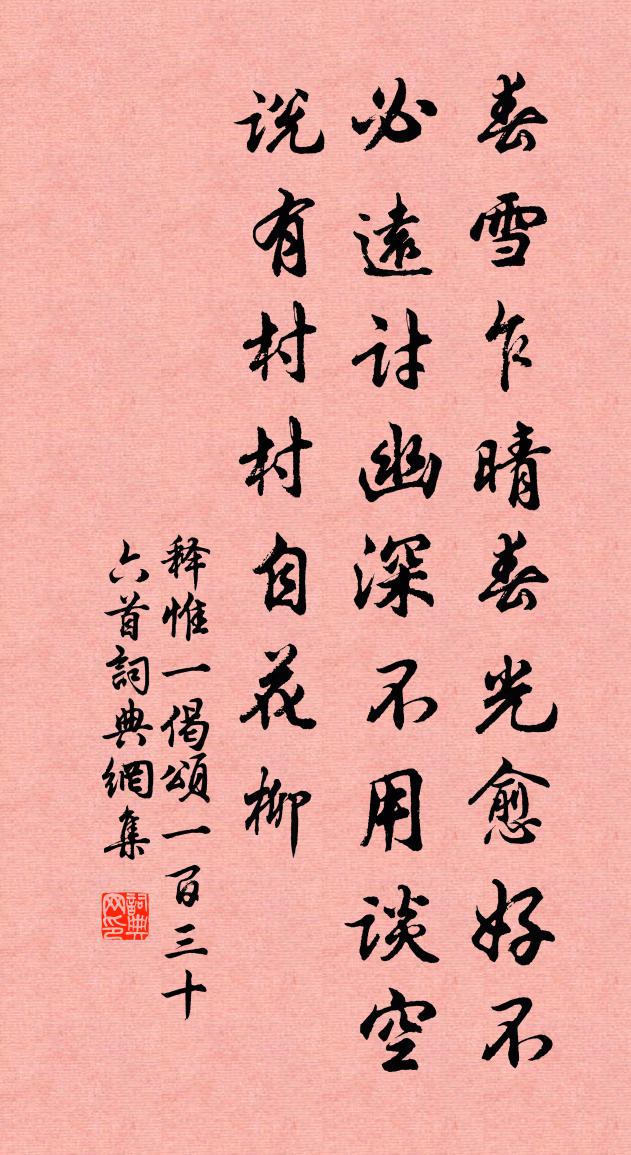 春雪乍晴春光愈好不
必遠討幽深不用谈空
说有村村自花柳
释惟一偈頌一百三十
六首詞典網集
詞典
网印